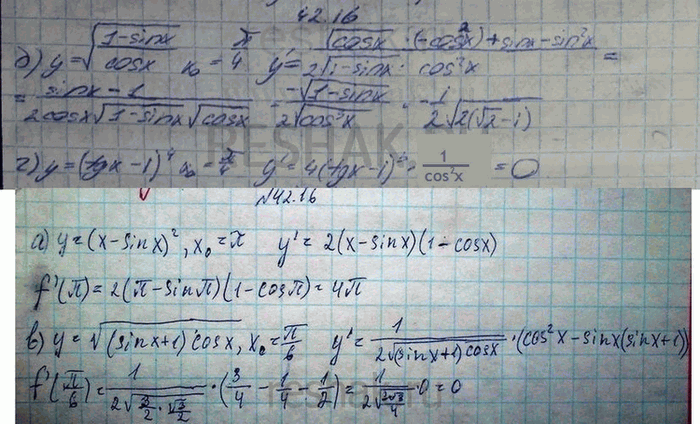 42.16
б) y = √((1-sinx)/cosx) x₀ = π/4 y' = √cosx · (-cos²x) + sinx - sin²x / 2√(1-sinx) · cos²x =
= (sinx - 1)/(2cosx√(1-sinx)√cosx) = -√(1-sinx)/(2√cos³x) = -1/2 √(2(√2-1))
г) y = (tgx - 1)⁴ x₀ = π/4 y' = 4(tgx - 1)³ · 1/cos²x = 0
№42.16
а) y = (x - sinx)², x₀ = π y' = 2(x - sinx)(1 - cosx)
f'(π) = 2(π - sinπ)(1 - cosπ) = 4π
в) y = √((sinx+1)cosx), x₀ = π/6 y' = 1/(2√((sinx+1)cosx)) · (cos²x - sinx(sinx+1))
f'(π/6) = 1/(2√(3/2 · √3/2)) · (3/4 - 1/4 - 1/2) = 1/(2√(3√3/4)) · 0 = 0